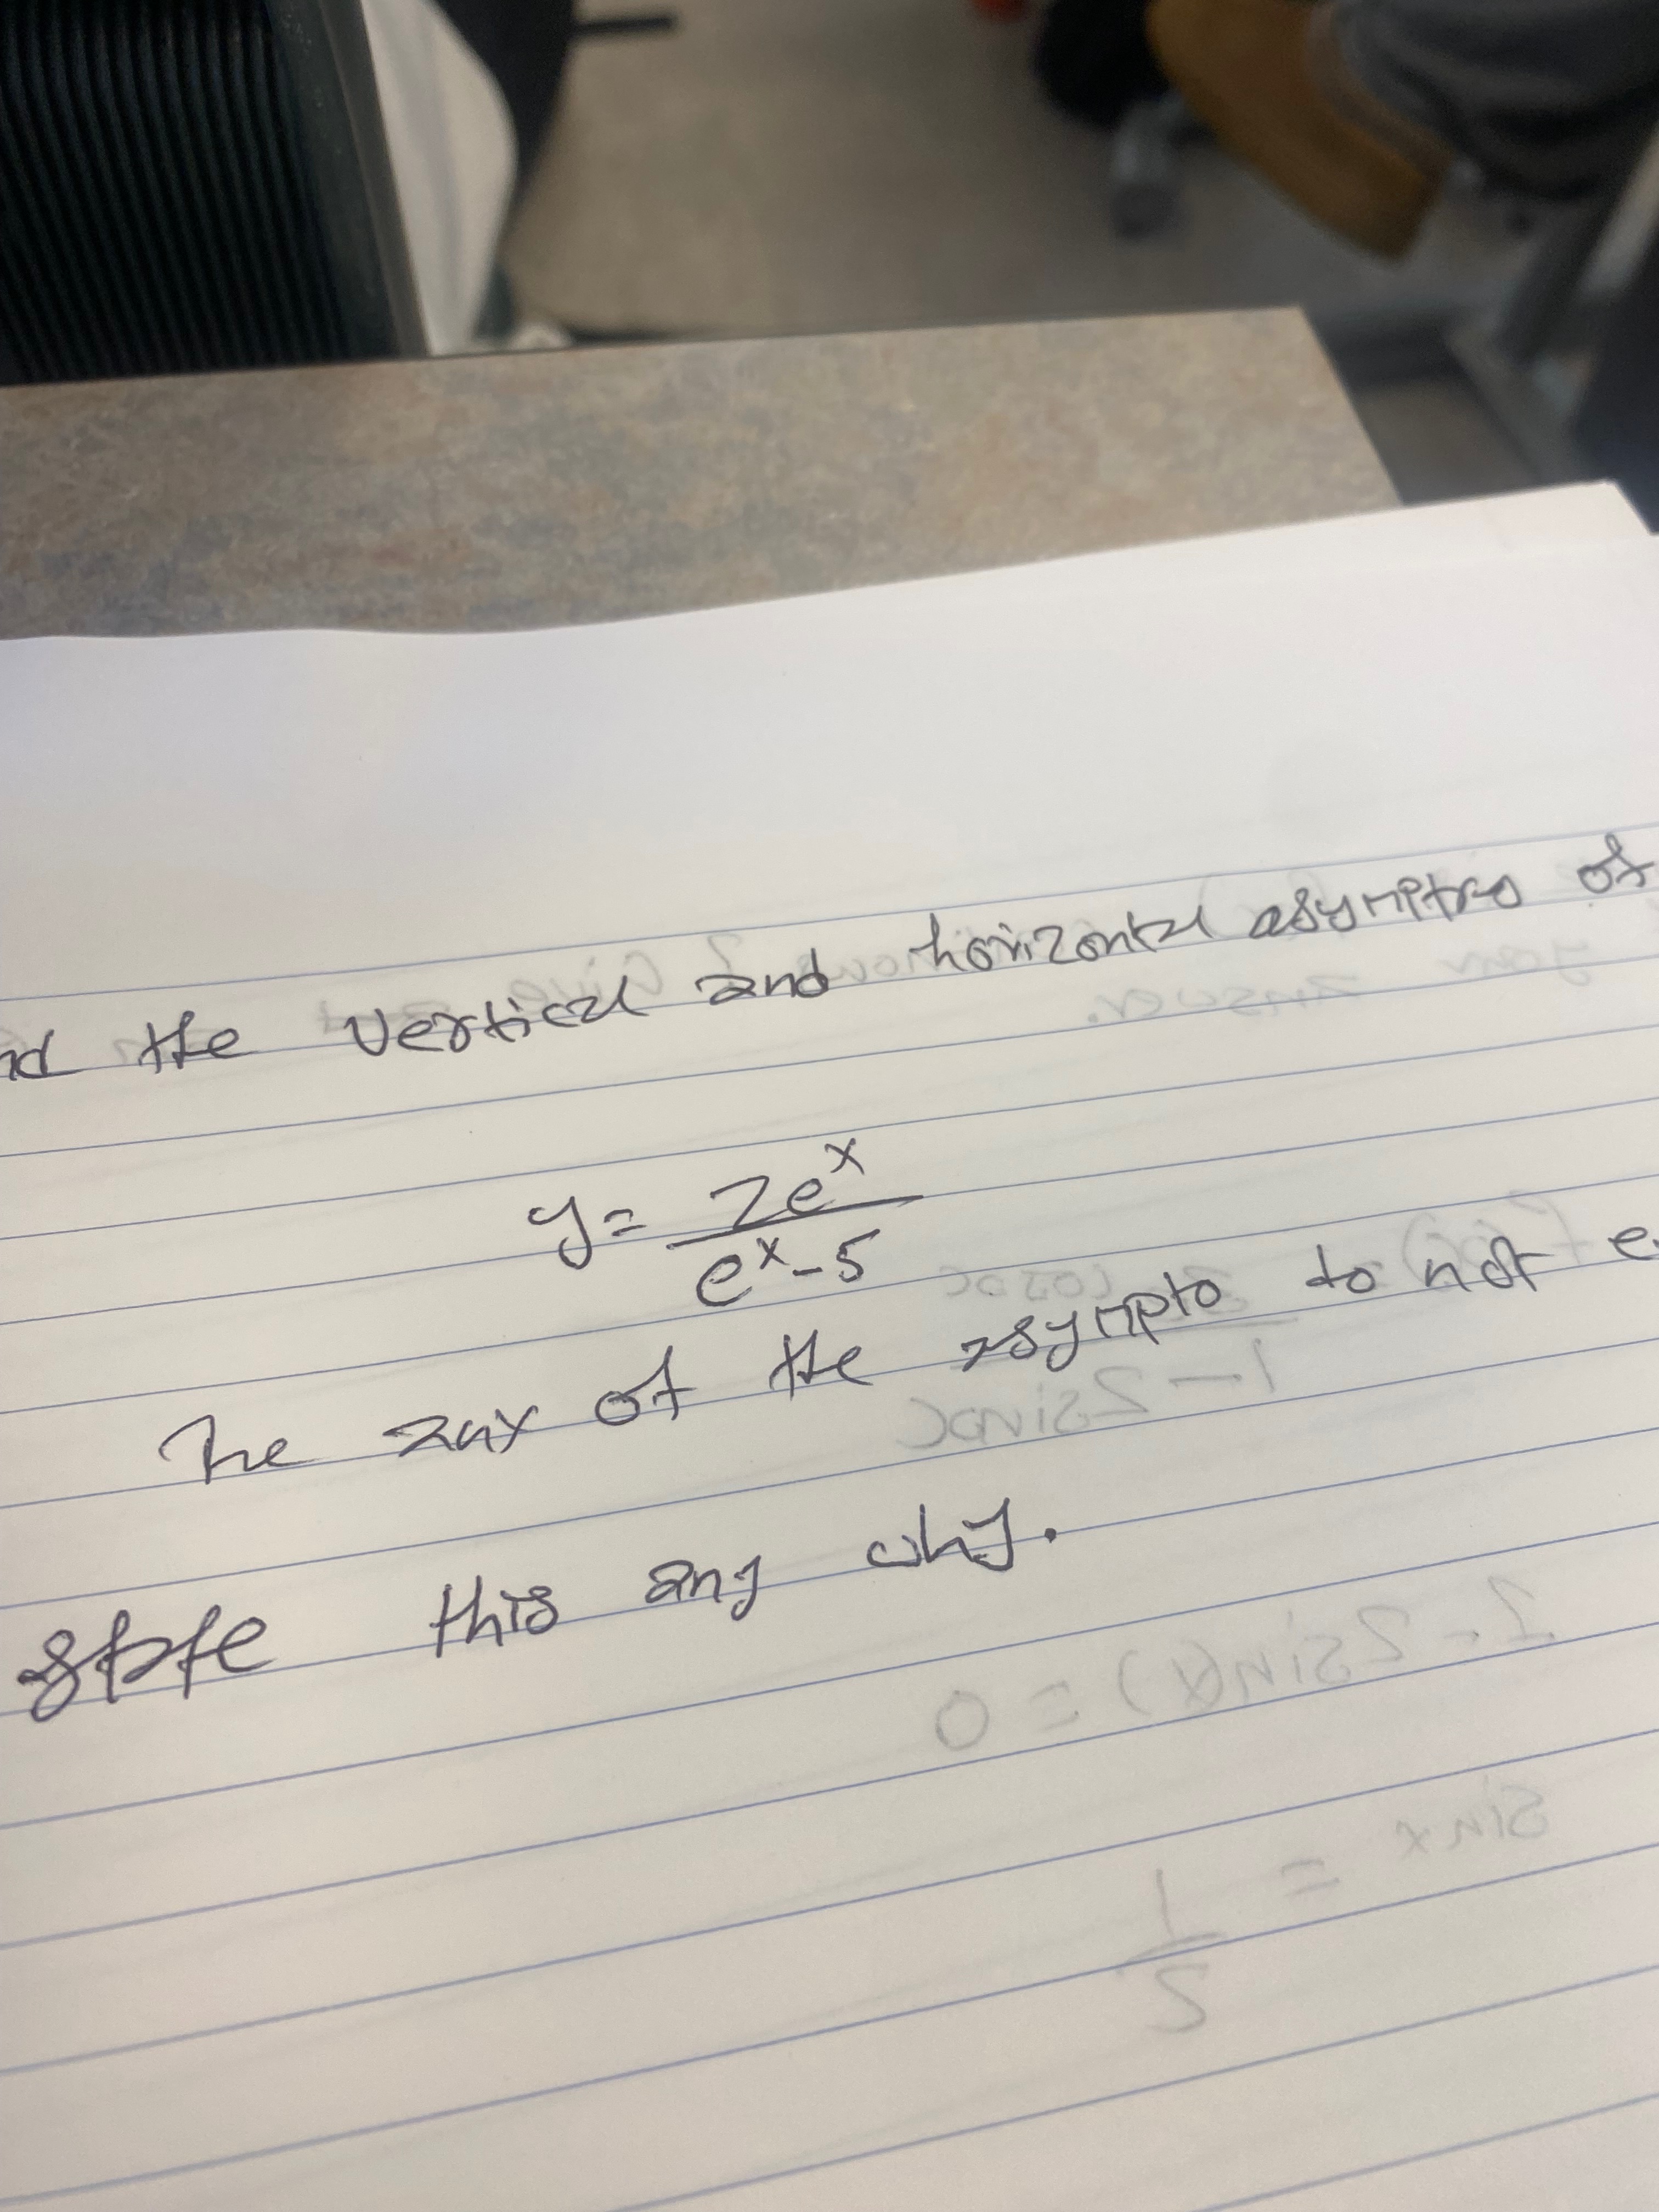 nd the Vertical and horizontal asymptro of
y = 2e^x / e^x - 5
The zny of the asympto do not e
state this any why.